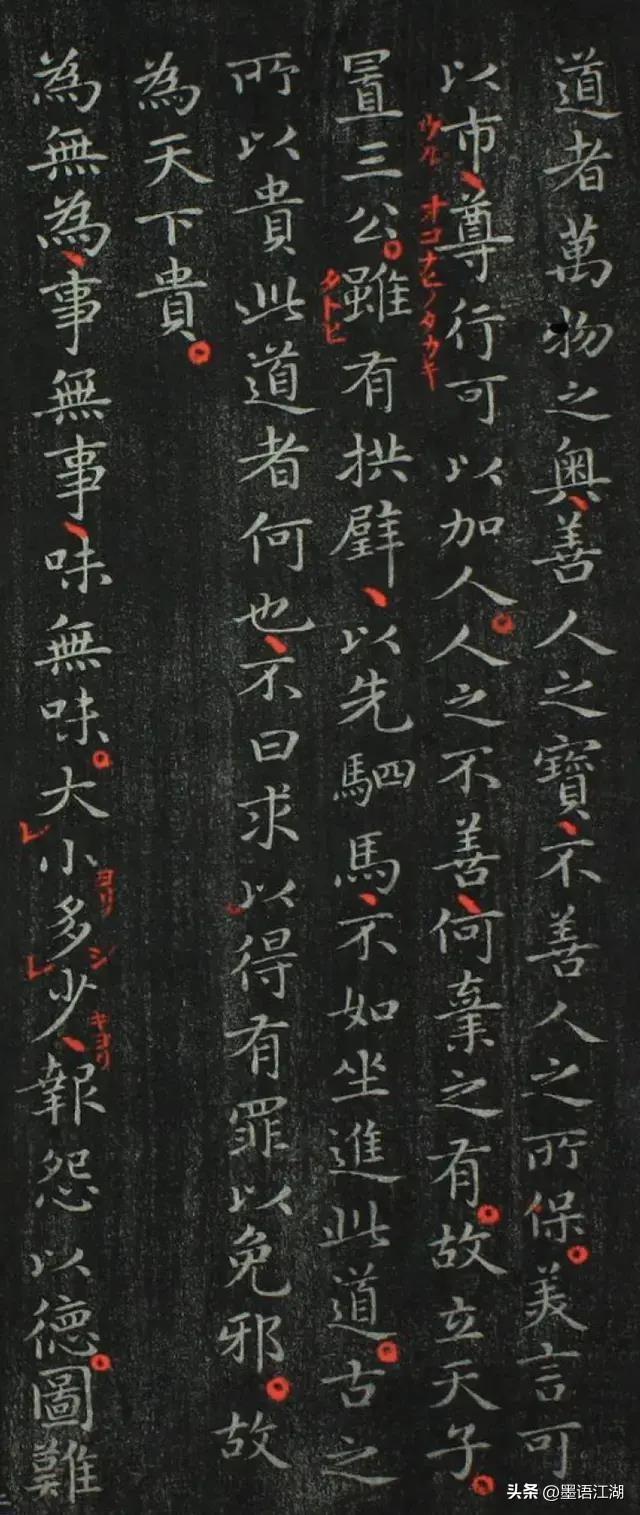 道者萬物之奥善人之寶不善人之所保美言可
以市尊行可以加人人之不善何棄之有故立天子
置三公雖有拱璧以先駟馬不如坐進此道古之
所以貴此道者何也不曰求以得有罪以免邪故
為天下貴
為無為事無事味無味大小多少報怨以德圖難
ウル
オコナヒノタカキ
タトヒ
ヨリ
シ
キヨリ
レ
レ
头条 @墨语江湖